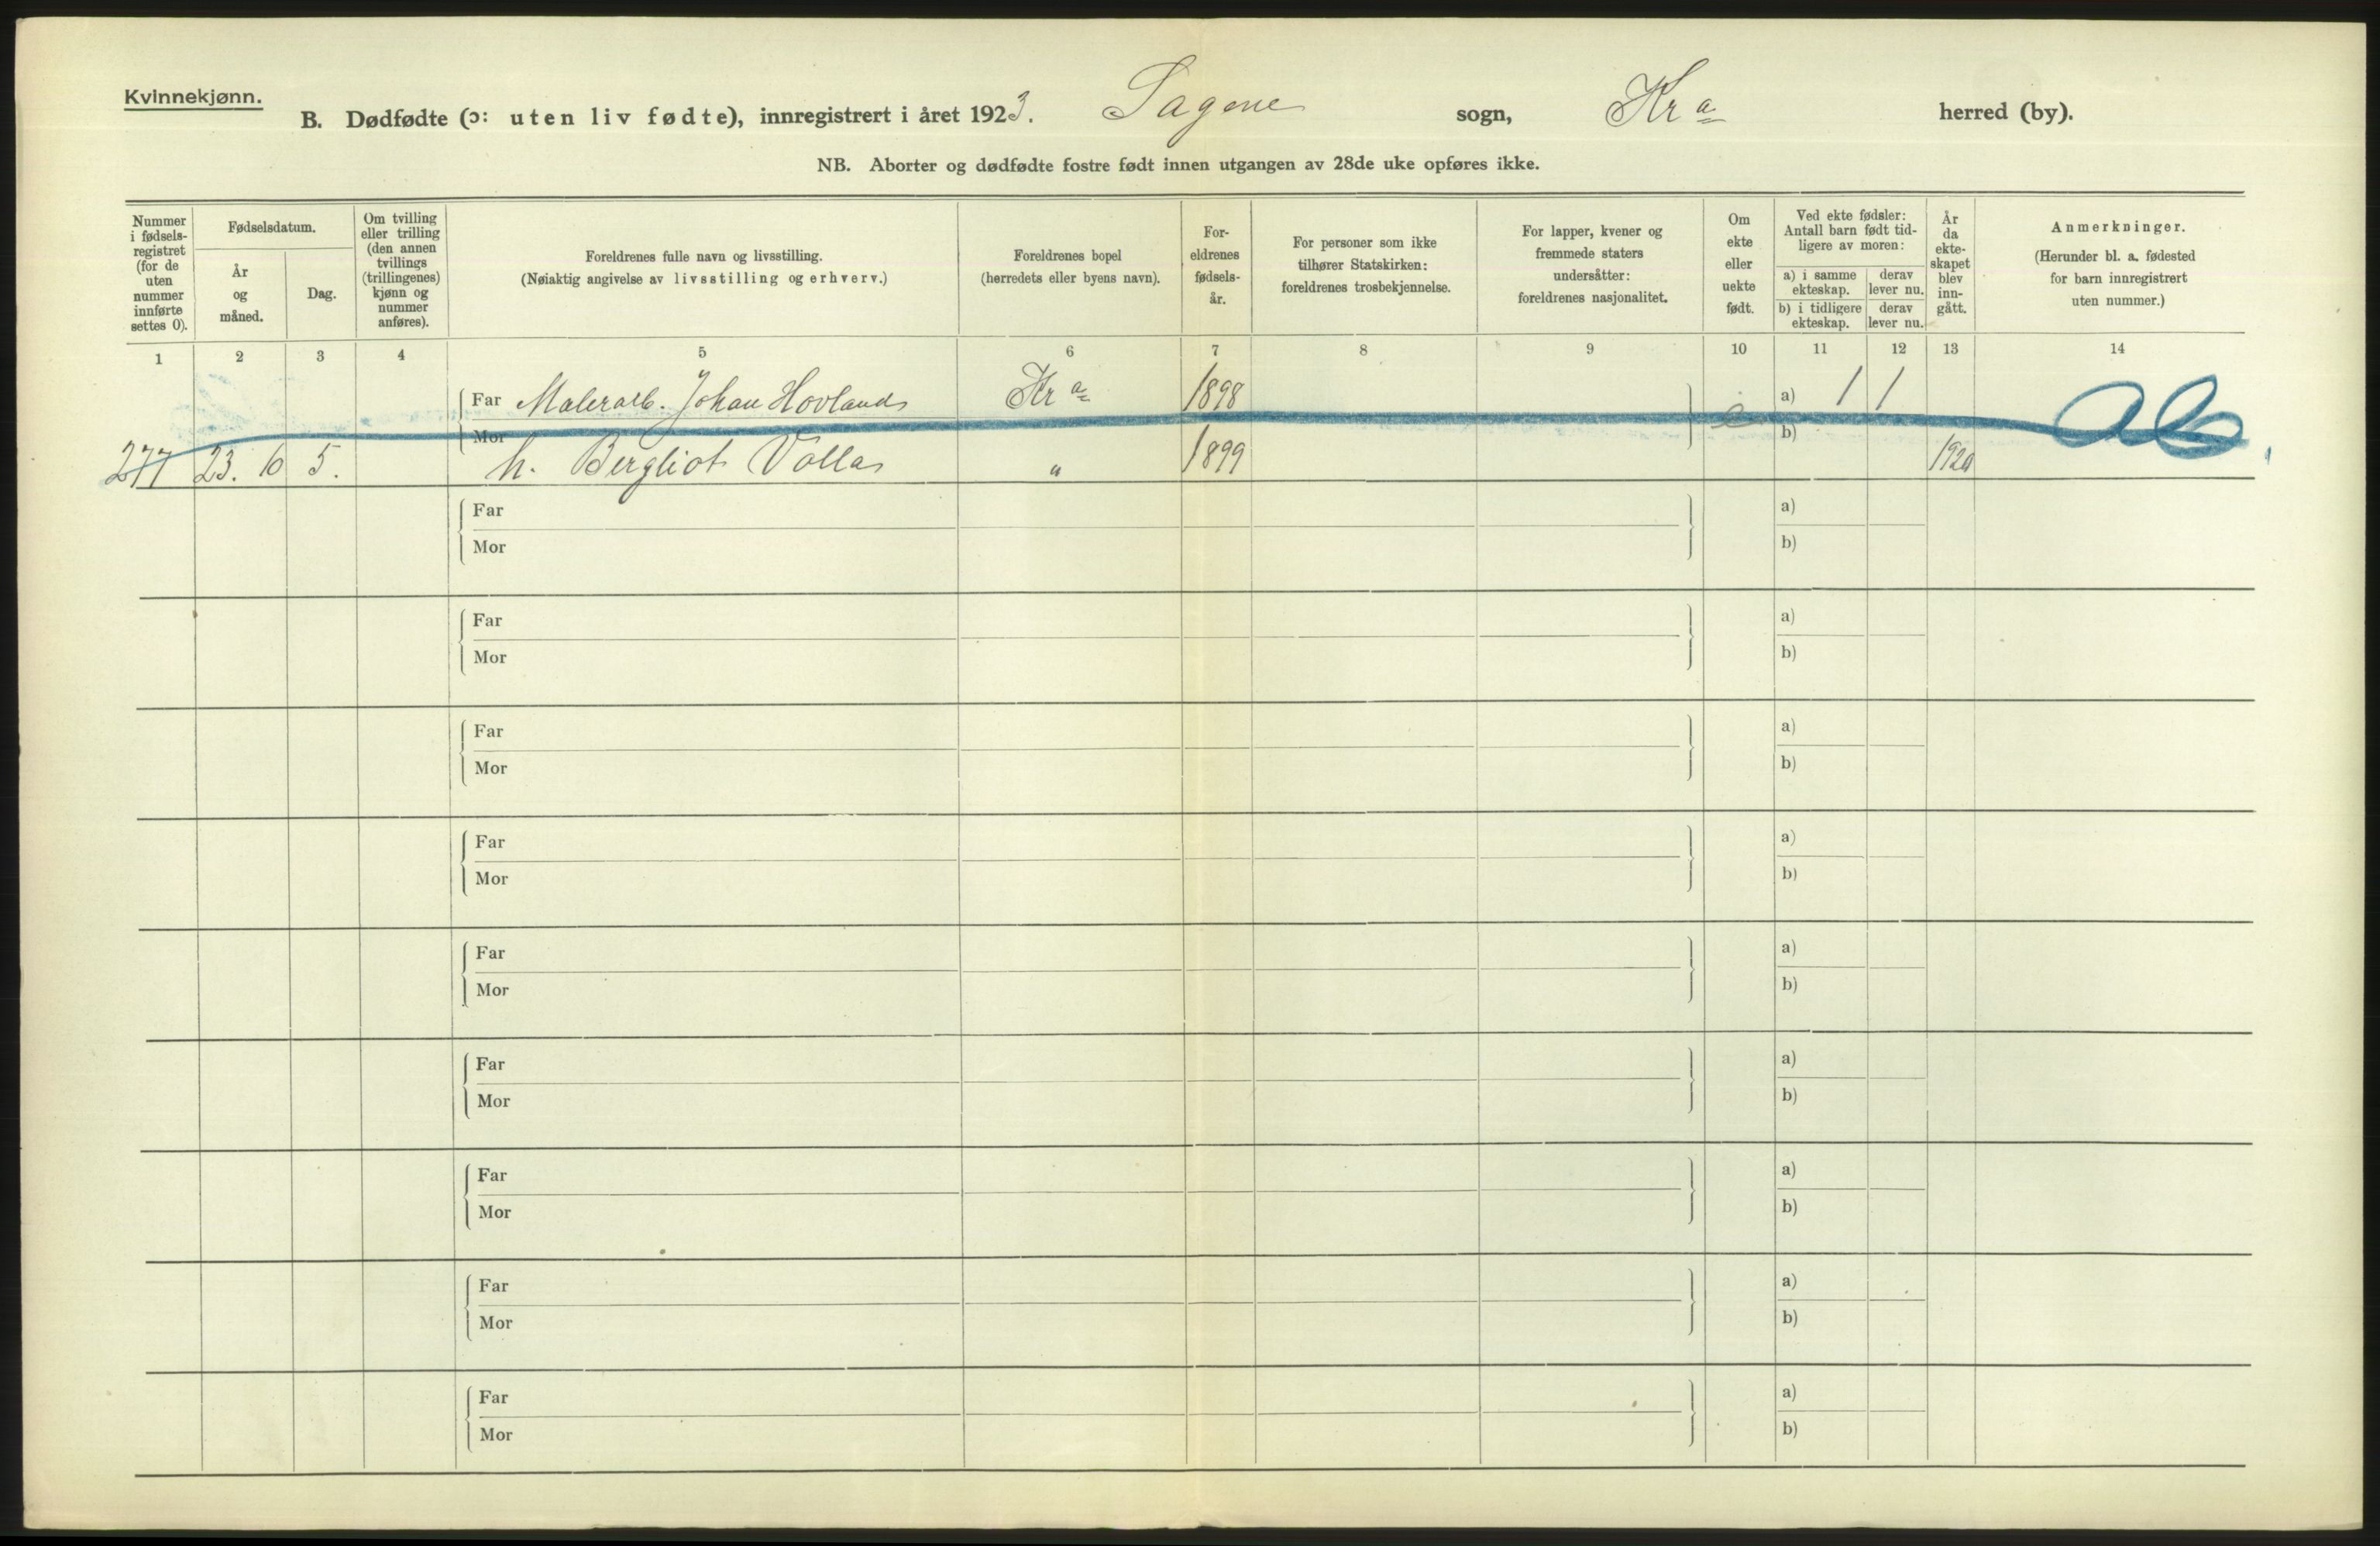 Kvinnekjønn.
B. Dødfødte (ɔ: uten liv fødte), innregistrert i året 1923. Sagene sogn, Kra herred (by).
NB. Aborter og dødfødte fostre født innen utgangen av 28de uke opføres ikke.
Nummer i fødselsregistret (for de uten nummer innførte settes 0).
Fødselsdatum.
År og måned.
Dag.
Om tvilling eller trilling (den annen tvillings (trillingenes) kjønn og nummer anføres).
Foreldrenes fulle navn og livsstilling.
(Nøiaktig angivelse av livsstilling og erhverv.)
Foreldrenes bopel
(herredets eller byens navn).
Foreldrenes fødselsår.
For personer som ikke tilhører Statskirken: foreldrenes trosbekjennelse.
For lapper, kvener og fremmede staters undersåtter: foreldrenes nasjonalitet.
Om ekte eller uekte født.
Ved ekte fødsler: Antall barn født tidligere av moren:
a) i samme ekteskap. derav lever nu.
b) i tidligere ekteskap. derav lever nu.
År da ekteskapet blev inngått.
Anmerkninger.
(Herunder bl. a. fødested for barn innregistrert uten nummer.)
1 2 3 4 5 6 7 8 9 10 11 12 13 14
Far Malerarb. Johan Hovland Kra 1898 e a) 1 1
Mor b)
277 23. 6 5. h. Bergliot Volla " 1899 1920
Far a)
Mor b)
Far a)
Mor b)
Far a)
Mor b)
Far a)
Mor b)
Far a)
Mor b)
Far a)
Mor b)
Far a)
Mor b)
Far a)
Mor b)
Far a)
Mor b)